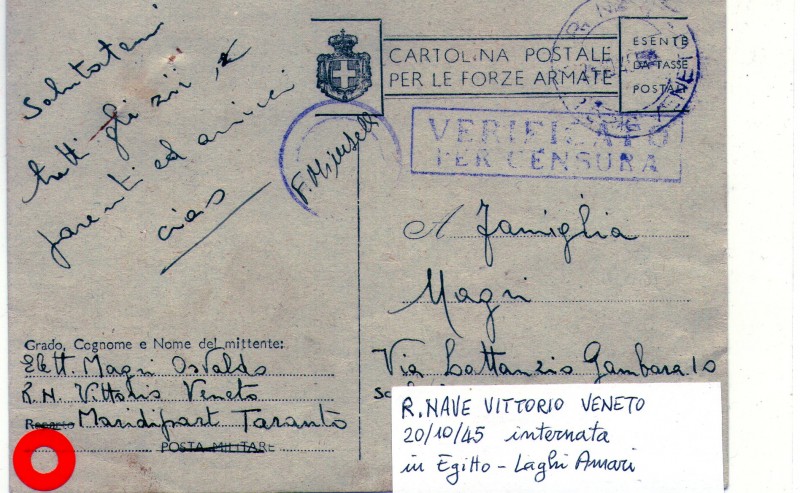 Salutatemi
tutti gli zii, e
parenti ed amici
ciao
CARTOLINA POSTALE
PER LE FORZE ARMATE
ESENTE
DA TASSE
POSTALI
VERIFICATO
PER CENSURA
A Famiglia
Magri
Via Lattanzio Gambara 10
Grado, Cognome e Nome del mittente:
Elett. Magri Osvaldo
R.N. Vittorio Veneto
Reparto Maridipart Taranto
POSTA MILITARE
R. NAVE VITTORIO VENETO
20/10/45 internata
in Egitto - Laghi Amari